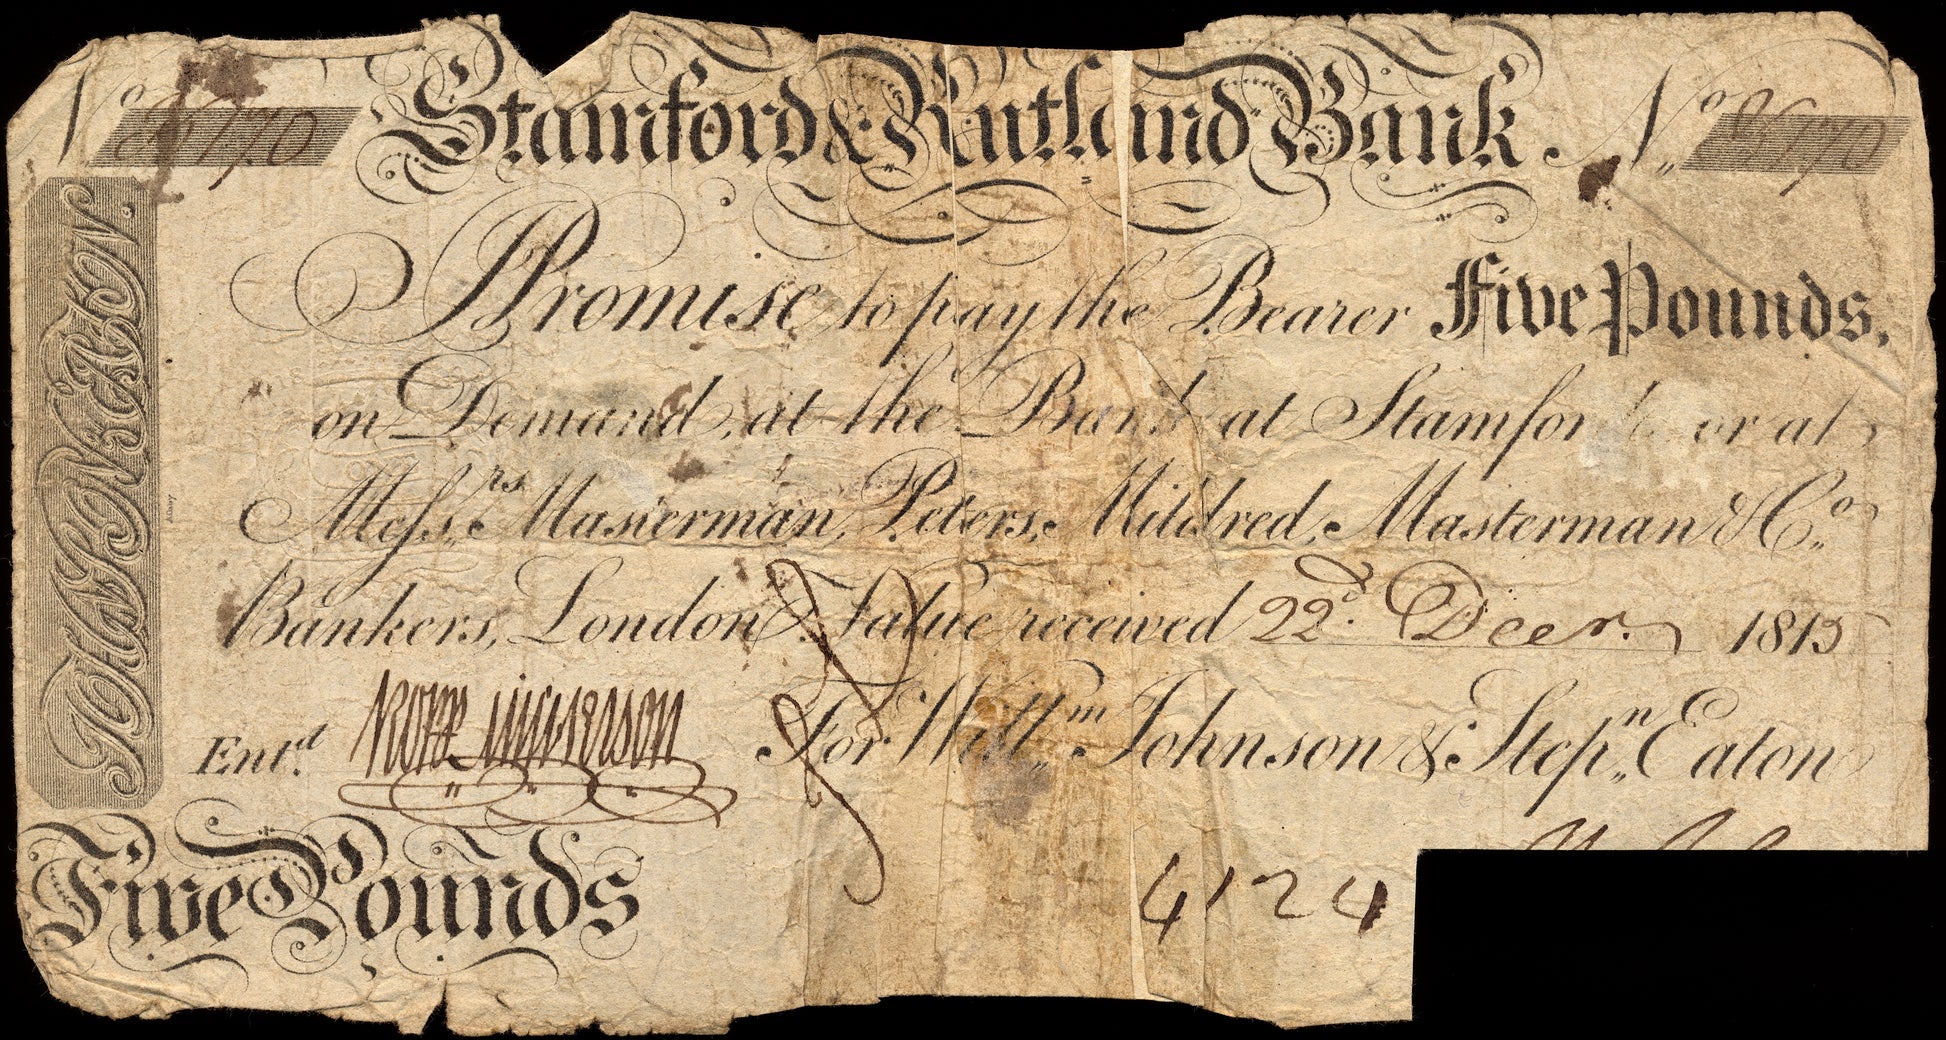 Stamford & Rutland Bank
No 8670 No 8670
I Promise to pay the Bearer Five Pounds.
on Demand, at the Bank at Stamford or at
Messrs. Masterman, Peters, Mildred, Masterman & Co.
Bankers, London. Value received 22d. Decer. 1815
Entd.
For Willm. Johnson & Stepn. Eaton
Five Pounds
4124
JOHNSON & EATON.